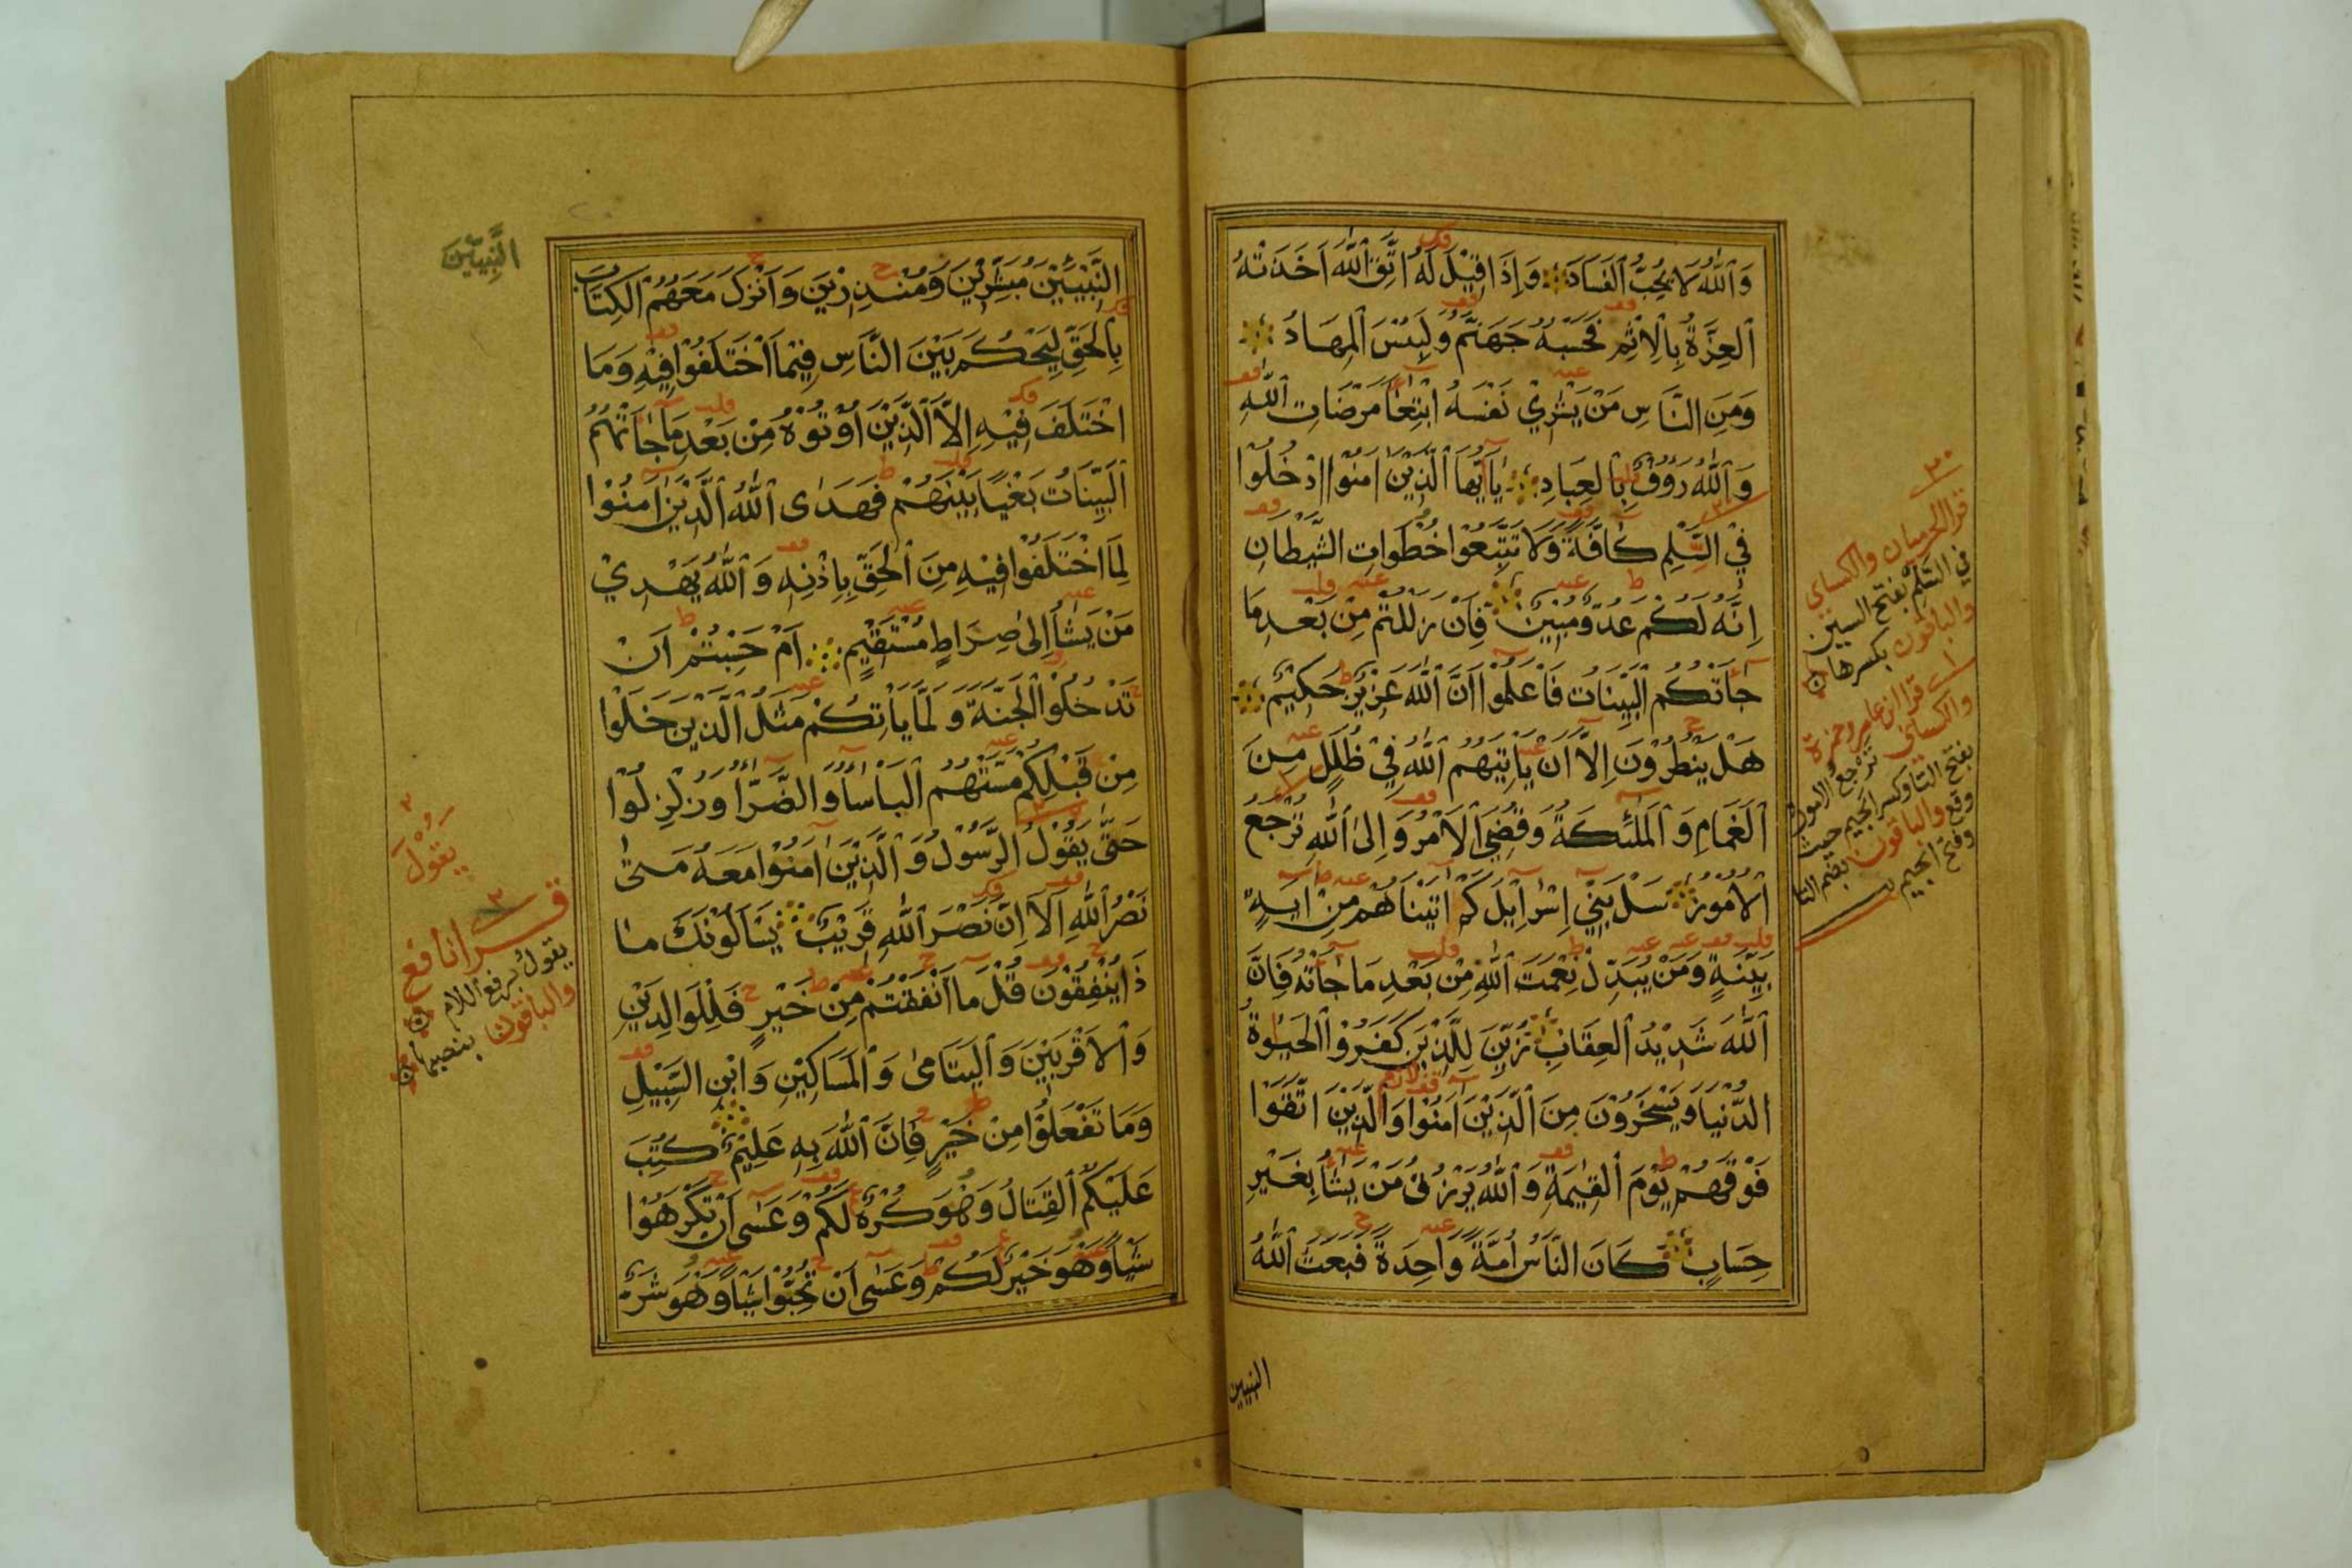 وَاللّٰهُ لَا يُحِبُّ الْفَسَادَ وَاِذَا قِيْلَ لَهُ اتَّقِ اللّٰهَ اَخَذَتْهُ
الْعِزَّةُ بِالْاِثْمِ فَحَسْبُهُ جَهَنَّمُ وَلَبِئْسَ الْمِهَادُ
وَمِنَ النَّاسِ مَنْ يَشْرِيْ نَفْسَهُ ابْتِغَآءَ مَرْضَاتِ اللّٰهِ
وَاللّٰهُ رَؤُوْفٌ بِالْعِبَادِ يَآ اَيُّهَا الَّذِيْنَ اٰمَنُوا ادْخُلُوْا
فِي السِّلْمِ كَآفَّةً وَلَا تَتَّبِعُوْا خُطُوَاتِ الشَّيْطَانِ
اِنَّهُ لَكُمْ عَدُوٌّ مُبِيْنٌ فَاِنْ زَلَلْتُمْ مِنْ بَعْدِ مَا
جَآءَتْكُمُ الْبَيِّنَاتُ فَاعْلَمُوْآ اَنَّ اللّٰهَ عَزِيْزٌ حَكِيْمٌ
هَلْ يَنْظُرُوْنَ اِلَّآ اَنْ يَاْتِيَهُمُ اللّٰهُ فِيْ ظُلَلٍ مِنَ
الْغَمَامِ وَالْمَلٰٓئِكَةُ وَقُضِيَ الْاَمْرُ وَاِلَى اللّٰهِ تُرْجَعُ
الْاُمُوْرُ سَلْ بَنِيْٓ اِسْرَآئِيْلَ كَمْ اٰتَيْنَاهُمْ مِنْ اٰيَةٍ
بَيِّنَةٍ وَمَنْ يُبَدِّلْ نِعْمَتَ اللّٰهِ مِنْ بَعْدِ مَا جَآءَتْهُ فَاِنَّ
اللّٰهَ شَدِيْدُ الْعِقَابِ زُيِّنَ لِلَّذِيْنَ كَفَرُوا الْحَيٰوةُ
الدُّنْيَا وَيَسْخَرُوْنَ مِنَ الَّذِيْنَ اٰمَنُوْا وَالَّذِيْنَ اتَّقَوْا
فَوْقَهُمْ يَوْمَ الْقِيٰمَةِ وَاللّٰهُ يَرْزُقُ مَنْ يَشَآءُ بِغَيْرِ
حِسَابٍ كَانَ النَّاسُ اُمَّةً وَاحِدَةً فَبَعَثَ اللّٰهُ
النبيين
قرا الحرميان والكسائي
في السَّلم بفتح السين
والباقون بكسرها
قرا ابن عامر وحمزة
والكسائي ترجع الامور
بفتح التا وكسر الجيم حيث
وقع والباقون بضم التا
وفتح الجيم
النَّبِيّٖنَ
النَّبِيّٖنَ مُبَشِّرِيْنَ وَمُنْذِرِيْنَ وَاَنْزَلَ مَعَهُمُ الْكِتَابَ
بِالْحَقِّ لِيَحْكُمَ بَيْنَ النَّاسِ فِيْمَا اخْتَلَفُوْا فِيْهِ وَمَا
اخْتَلَفَ فِيْهِ اِلَّا الَّذِيْنَ اُوْتُوْهُ مِنْ بَعْدِ مَا جَآءَتْهُمُ
الْبَيِّنَاتُ بَغْيًا بَيْنَهُمْ فَهَدَى اللّٰهُ الَّذِيْنَ اٰمَنُوْا
لِمَا اخْتَلَفُوْا فِيْهِ مِنَ الْحَقِّ بِاِذْنِهِ وَاللّٰهُ يَهْدِيْ
مَنْ يَشَآءُ اِلٰى صِرَاطٍ مُسْتَقِيْمٍ اَمْ حَسِبْتُمْ اَنْ
تَدْخُلُوا الْجَنَّةَ وَلَمَّا يَاْتِكُمْ مَثَلُ الَّذِيْنَ خَلَوْا
مِنْ قَبْلِكُمْ مَسَّتْهُمُ الْبَاْسَآءُ وَالضَّرَّآءُ وَزُلْزِلُوْا
حَتّٰى يَقُوْلَ الرَّسُوْلُ وَالَّذِيْنَ اٰمَنُوْا مَعَهُ مَتٰى
نَصْرُ اللّٰهِ اَلَآ اِنَّ نَصْرَ اللّٰهِ قَرِيْبٌ يَسْاَلُوْنَكَ مَا
ذَا يُنْفِقُوْنَ قُلْ مَآ اَنْفَقْتُمْ مِنْ خَيْرٍ فَلِلْوَالِدَيْنِ
وَالْاَقْرَبِيْنَ وَالْيَتَامٰى وَالْمَسَاكِيْنِ وَابْنِ السَّبِيْلِ
وَمَا تَفْعَلُوْا مِنْ خَيْرٍ فَاِنَّ اللّٰهَ بِهِ عَلِيْمٌ كُتِبَ
عَلَيْكُمُ الْقِتَالُ وَهُوَ كُرْهٌ لَكُمْ وَعَسٰٓى اَنْ تَكْرَهُوْا
شَيْـًٔا وَهُوَ خَيْرٌ لَكُمْ وَعَسٰٓى اَنْ تُحِبُّوْا شَيْـًٔا وَهُوَ شَرٌّ
يَقُوْلُ
قرا نافع
يقولُ برفع اللام
والباقون بنصبها